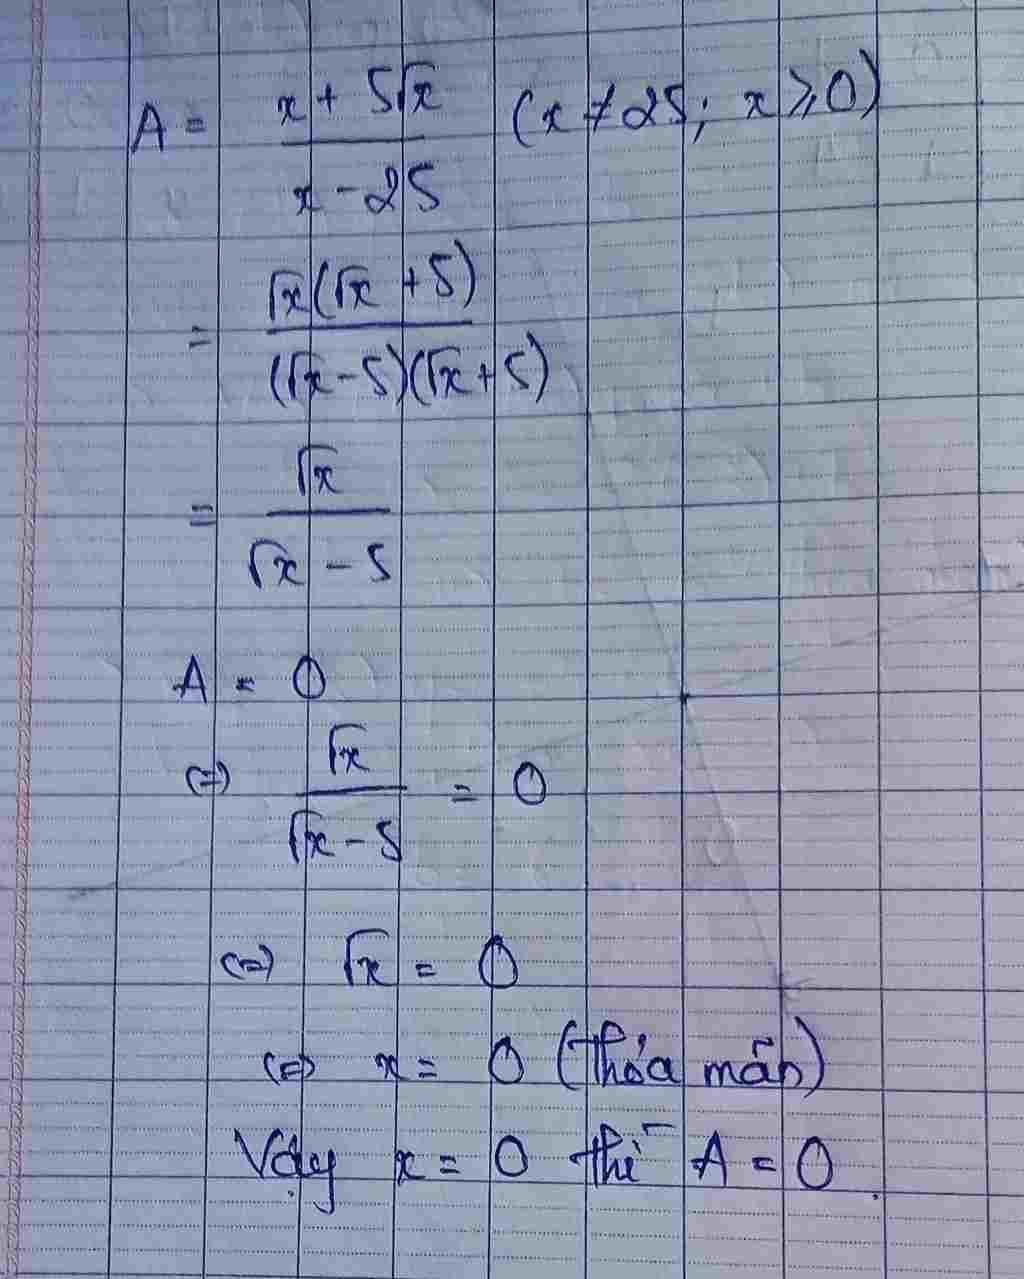 A = (x + 5√x)/(x - 25) (x ≠ 25; x ⩾ 0)
= (√x(√x + 5))/((√x - 5)(√x + 5))
= √x/(√x - 5)
A = 0
(=) √x/(√x - 5) = 0
(=) √x = 0
(=) x = 0 (thỏa mãn)
Vậy x = 0 thì A = 0.